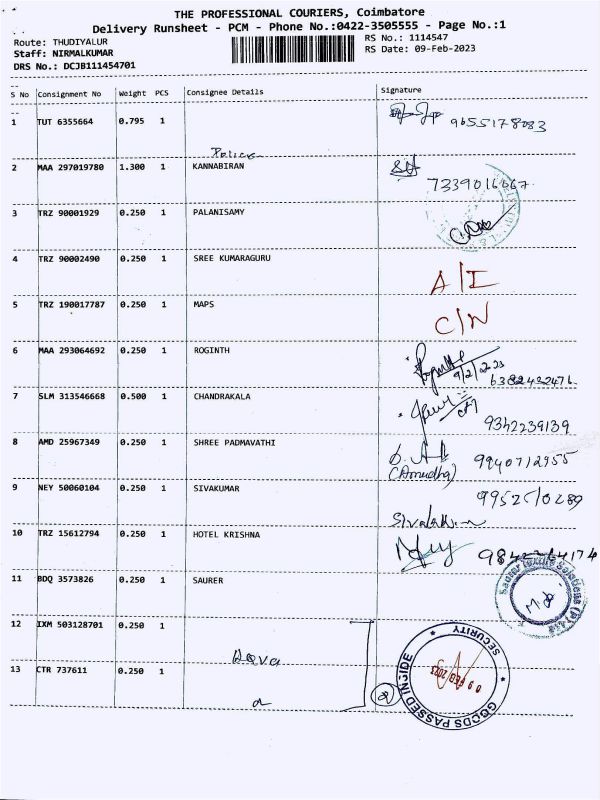 THE PROFESSIONAL COURIERS, Coimbatore
Delivery Runsheet - PCM - Phone No.:0422-3505555 - Page No.:1
Route: THUDIYALUR
RS No.: 1114547
Staff: NIRMALKUMAR
RS Date: 09-Feb-2023
DRS No.: DCJB111454701
S No Consignment No Weight PCS Consignee Details Signature
1 TUT 6355664 0.795 1 9655178083
Police
2 MAA 297019780 1.300 1 KANNABIRAN
7339016667
3 TRZ 90001929 0.250 1 PALANISAMY
4 TRZ 90002490 0.250 1 SREE KUMARAGURU A/I
5 TRZ 190017787 0.250 1 MAPS C/N
6 MAA 293064692 0.250 1 ROGINTH
9/2/2023
6382432476
7 SLM 313546668 0.500 1 CHANDRAKALA
9342239139
8 AMD 25967349 0.250 1 SHREE PADMAVATHI 9940712955
(Amudha)
9 NEY 50060104 0.250 1 SIVAKUMAR
10 TRZ 15612794 0.250 1 HOTEL KRISHNA
11 BDQ 3573826 0.250 1 SAURER
Saurer Textile Solutions (P) Ltd
12 IXM 503128701 0.250 1
13 CTR 737611 0.250 1
2
SECURITY
09 FEB 2023
GOODS PASSED INSIDE